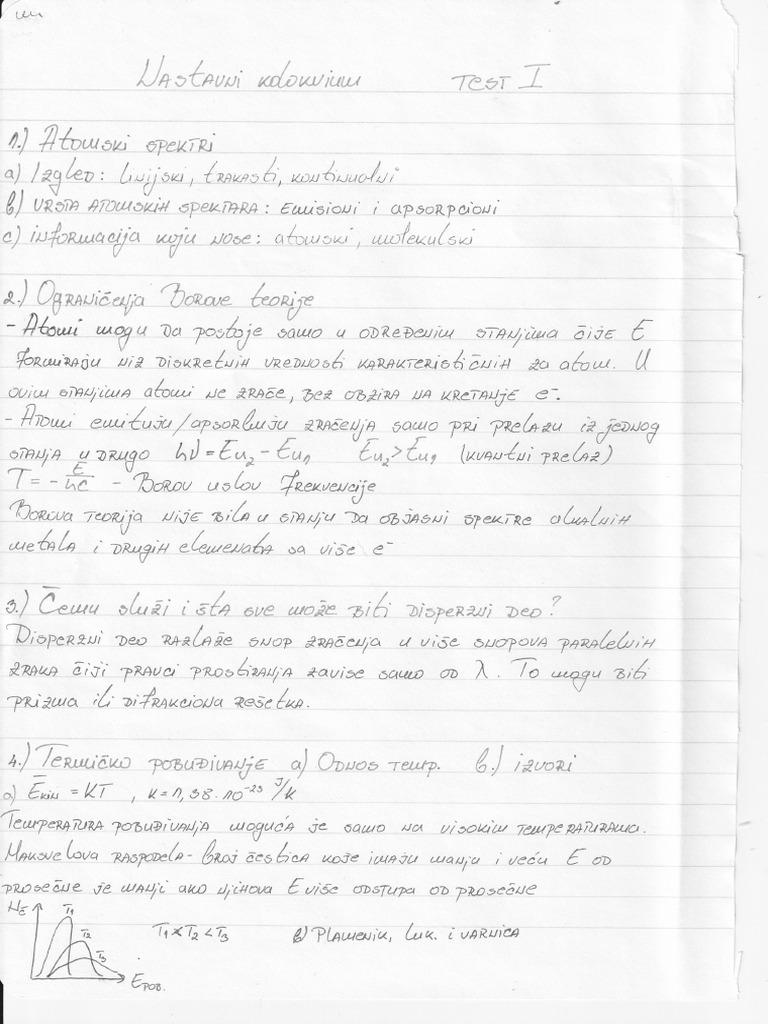 Nastavni kolokvijum TEST I
1.) Atomski spektri
a) Izgled: linijski, trakasti, kontinualni
b) vrsta atomskih spektara: emisioni i apsorpcioni
c) informacija koju nose: atomski, molekulski
2.) Ograničenja Borove teorije
- Atomi mogu da postoje samo u određenim stanjima čije E
formiraju niz diskretnih vrednosti karakterističnih za atom. U
ovim stanjima atomi ne zrače, bez obzira na kretanje e⁻.
- Atomi emituju/apsorbuju zračenja samo pri prelazu iz jednog
stanja u drugo hν = En₂ - En₁ En₂ > En₁ (kvantni prelaz)
T = - E/hc - Borov uslov frekvencije
Borova teorija nije bila u stanju da objasni spektre alkalnih
metala i drugih elemenata sa više e⁻
3.) Čemu služi i šta sve može biti disperzni deo?
Disperzni deo razlaže snop zračenja u više snopova paralelnih
zraka čiji pravci prostiranja zavise samo od λ. To mogu biti
prizma ili difrakciona rešetka.
4.) Termičko pobuđivanje a) Odnos temp. b.) izvori
a) Ēkin = KT , k = 1,38·10⁻²³ J/K
Temperatura pobuđivanja moguća je samo na visokim temperaturama.
Maksvelova raspodela - broj čestica koje imaju manju i veću E od
prosečne je manji ako njihova E više odstupa od prosečne
NE T1 T2 T3 Epob.
T1 < T2 < T3 b) Plamenik, luk i varnica